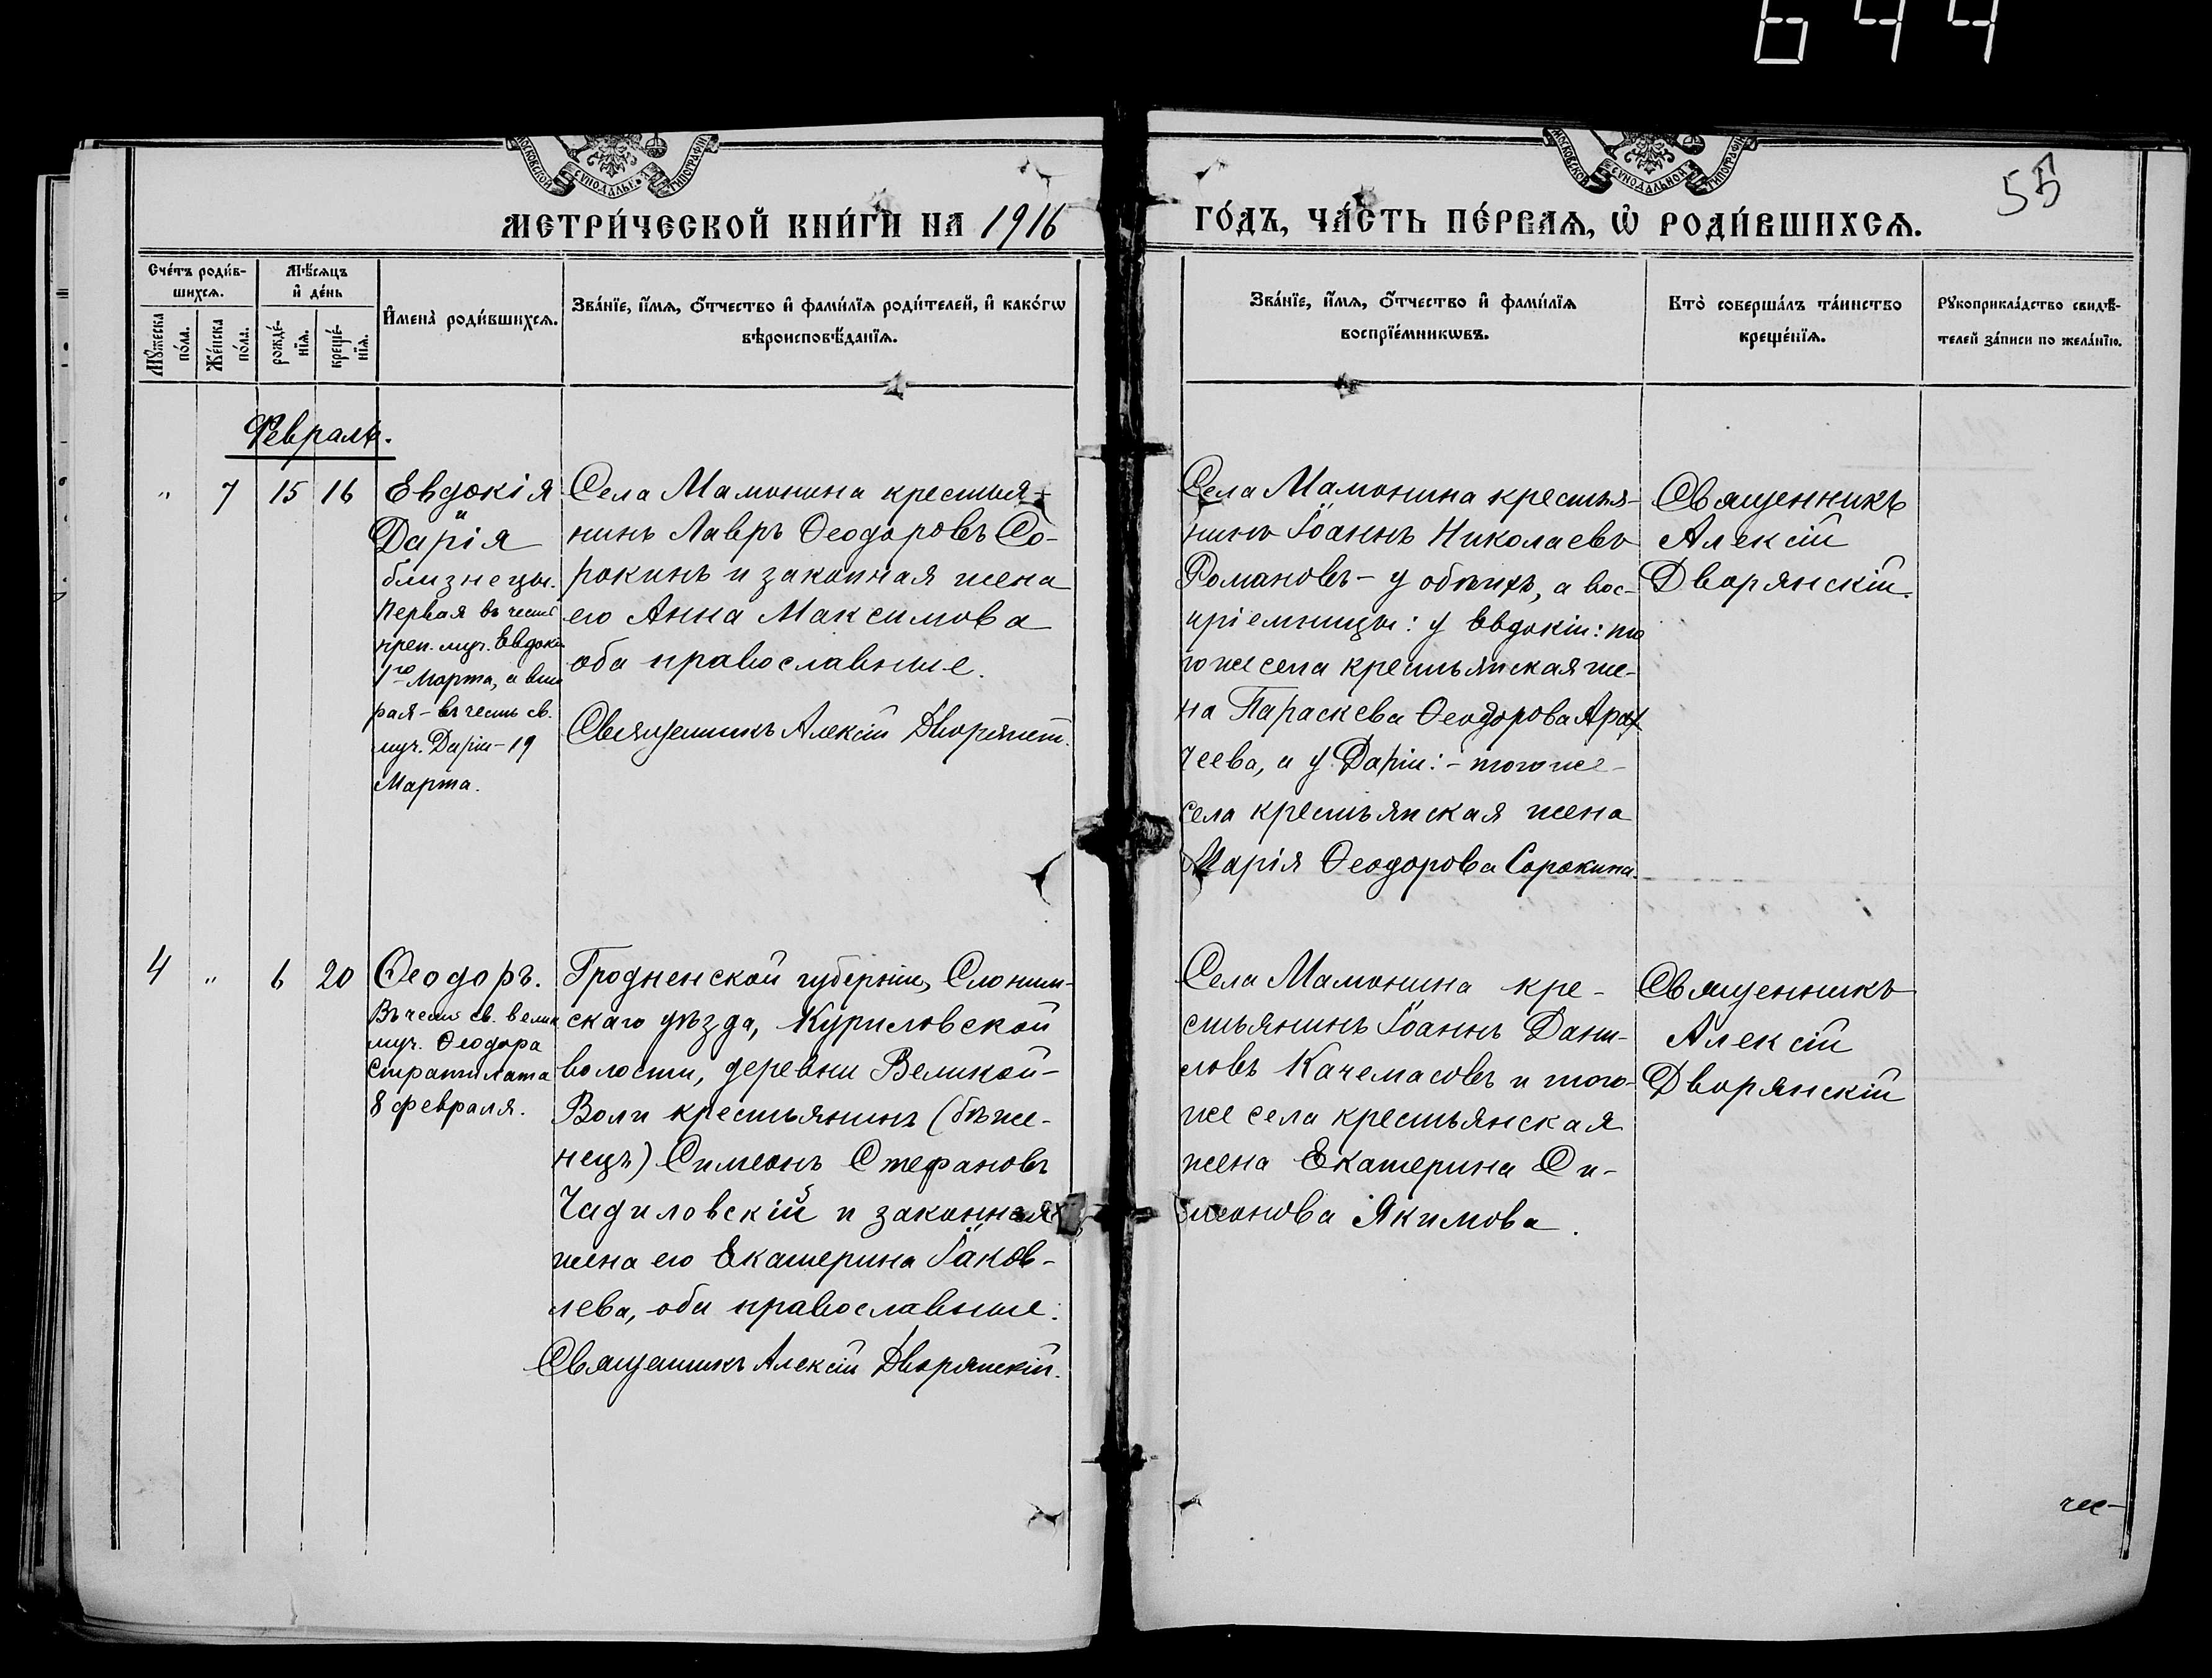 644
МОСКОВСКОЙ СѴНОДАЛЬНОЙ ТИПОГРАФІИ
МОСКОВСКОЙ СѴНОДАЛЬНОЙ ТИПОГРАФІИ
55
МЕТРИ́ЧЕСКОЙ КНИ́ГИ НА 1916
ГО́ДЪ, ЧА́СТЬ ПЕ́РВАѦ, Ѽ РОДИ́ВШИХСѦ.
Сче́тъ роди́в-
шихсѧ.
Мꙋ́жеска
по́ла.
Же́нска
по́ла.
Мѣ́сѧцъ
и҆ де́нь
рожде́-
нїѧ.
креще́-
нїѧ.
И҆мена̀ роди́вшихсѧ.
Зва́нїе, и҆́мѧ, ѻ҆́тчество и҆ фамѝлїѧ роди́телей, и҆ како́гѡ
вѣроисповѣ́данїѧ.
Зва́нїе, и҆́мѧ, ѻ҆́тчество и҆ фамѝлїѧ
воспрїе́мникѡвъ.
Кто̀ соверша́лъ та́инство
креще́нїѧ.
Рꙋкоприкла́дство свидѣ́-
телей за́писи по жела́нїю.
Февраль.
" 7 15 16
Евдокія
и
Дарія
близнецы.
Первая въ честь
преп. муч. Евдокіи
1го Марта, а вто
рая - въ честь св.
муч. Даріи - 19
Марта.
Села Мамонина крестья-
нинъ Лавръ Ѳеодоровъ Со-
рокинъ и законная жена
его Анна Максимова
оба православные.
Священникъ Алексій Дворянскій.
Села Мамонина крестья-
нинъ Іоаннъ Николаевъ
Романовъ - у обѣихъ, а вос-
пріемницы: у Евдокіи: то
го же села крестьянская же-
на Параскева Ѳеодорова Арак
чеева, а у Даріи: - того же -
села крестьянская жена
Марія Ѳеодорова Сорокина.
Священникъ
Алексій
Дворянскій.
4 " 6 20
Ѳеодоръ.
Въ честь св. велик
муч. Ѳеодора
Стратилата
8 февраля.
Гродненской губерніи, Слоним-
скаго уѣзда, Куриловской
волости, деревни Великой-
Воли крестьянинъ (бѣже-
нецъ) Симеонъ Стефановъ
Чадиловскій и законная
жена его Екатерина Іаков-
лева, оба православные.
Священникъ Алексій Дворянскій.
Села Мамонина кре-
стьянинъ Іоаннъ Дани-
ловъ Качемасовъ и того-
же села крестьянская
жена Екатерина Си-
меонова Якимова.
Священникъ
Алексій
Дворянскій